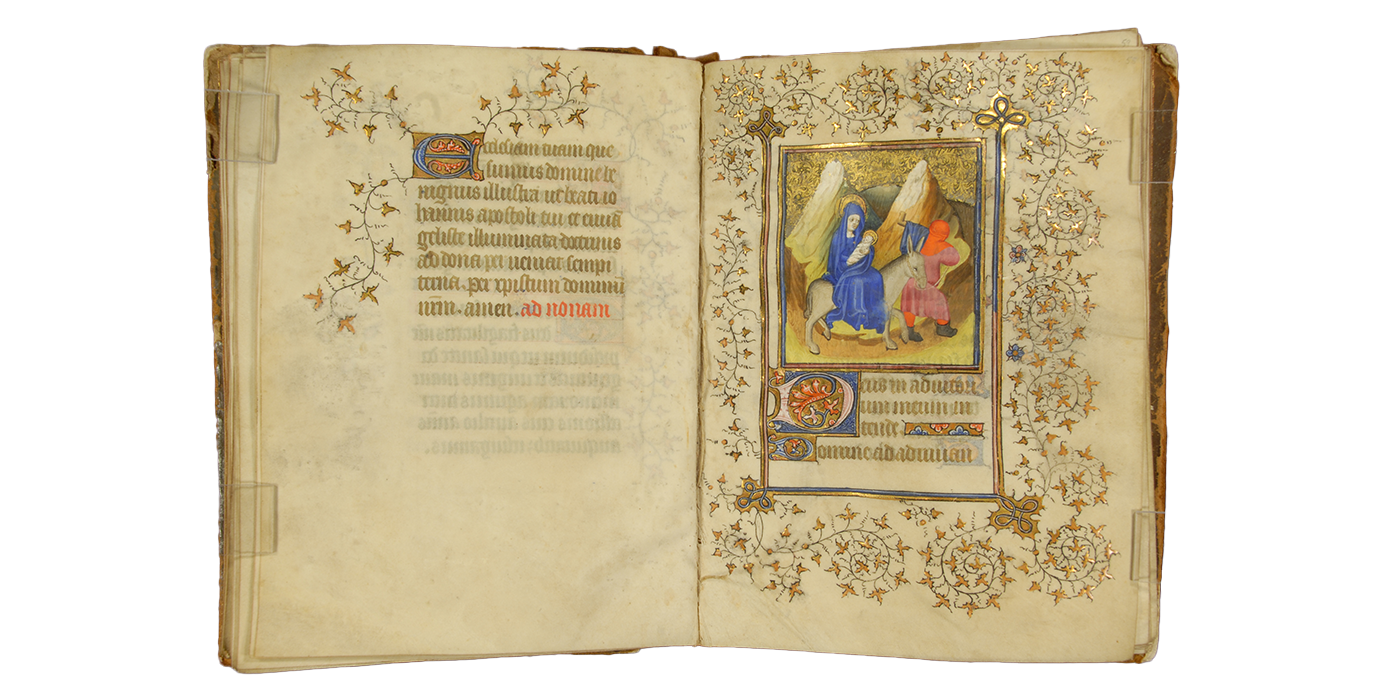 Ecclesiam tuam que
sumus domine be
nignus illustra ut beati io
hannis apostoli tui et euuā
geliste illuminata doctrinis
ad dona per ueniat sempi
terna. per xpistum dominū
nr̄m. amen. ad nonam
Deus in adiutori
um meum in
tende
Domine ad adiuuan